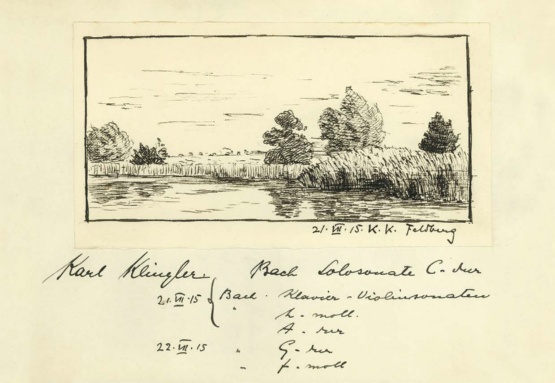 21·VII·15. K. K. Feldberg
Karl Klingler. Bach Solosonate C-dur
21·VII·15 Bach· Klavier-Violinsonaten
" h-moll.
A-dur
22·VII·15 " G-dur
" f-moll